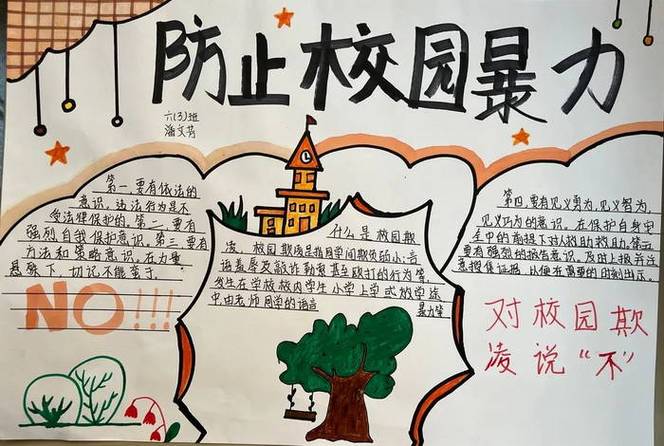 防止校园暴力
六(3)班
潘文芳
第一,要有依法的
意识,违法行为是不
受法律保护的。第二,要有
强烈自我保护意识。第三,要有
方法和策略意识,在力量
悬殊下,切记不能蛮干。
NO!!!
什么是校园欺
凌,校园欺凌是指同学间欺负弱小,言
语羞辱及敲诈勒索甚至殴打的行为等,
发生在学校校内学生小学上学或放学途
中由老师同学的语言
暴力等
第四,要有见义勇为,见义智为,
见义巧为的意识。在保护自身安
全中的前提下对人救助救助。第五
要有强烈的报告意识,及时上报并注
意搜集证据,以便在需要的时刻出示。
对校园欺
凌说“不”